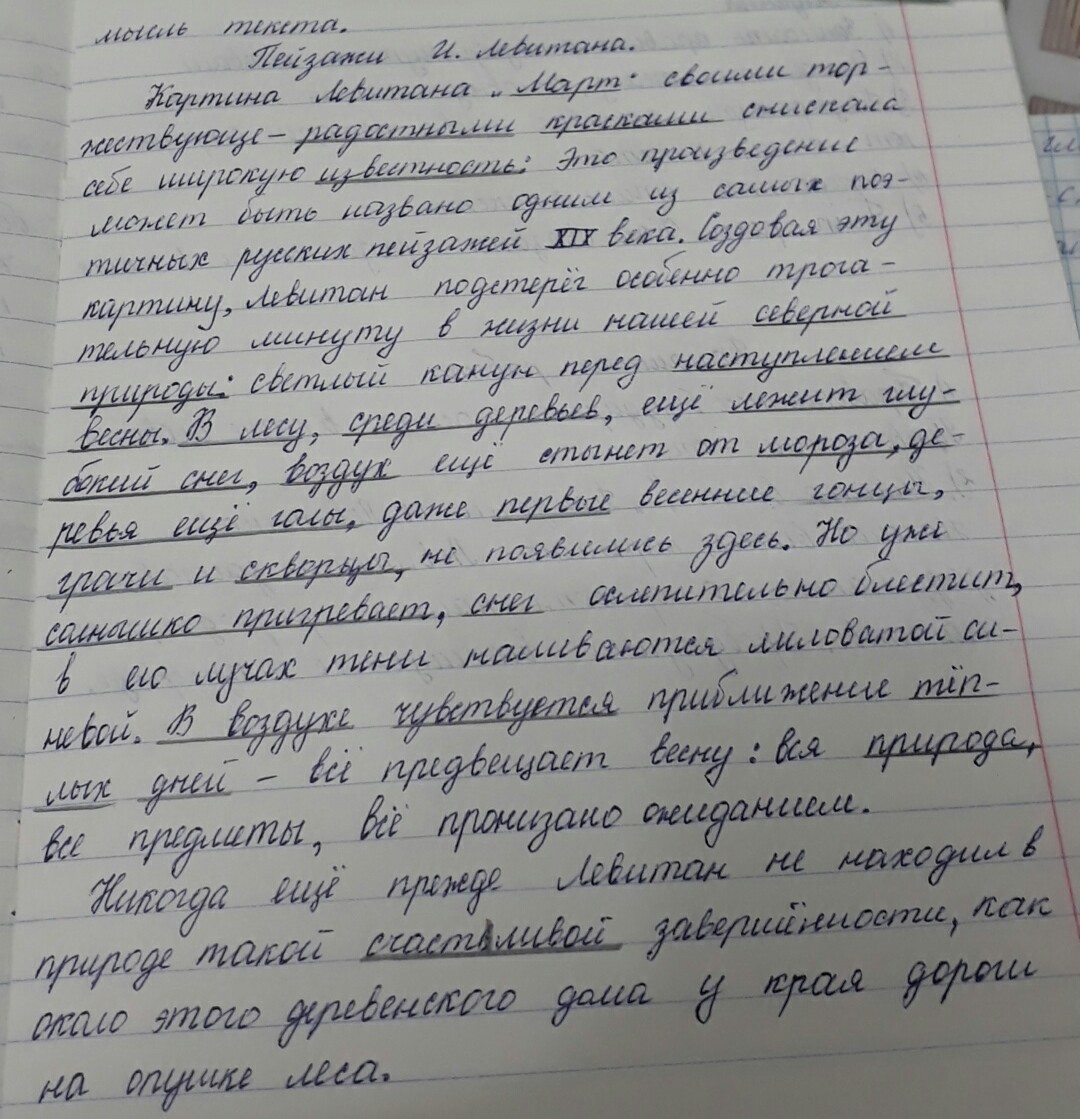 мысль текста.
Пейзажи И. Левитана.
Картина Левитана „Март" своими тор-
жествующе-радостными красками снискала
себе широкую известность: Это произведение
может быть названо одним из самых поэ-
тичных русских пейзажей XIX века. Создовая эту
картину, Левитан подстерёг особенно трога-
тельную минуту в жизни нашей северной
природы: светлый канун перед наступлением
весны. В лесу, среди деревьев, ещё лежит глу-
бокий снег, воздух ещё стынет от мороза, де-
ревья ещё голы, даже первые весенние гонцы,
грачи и скворцы, не появились здесь. Но уже
солнышко пригревает, снег ослепительно блестит,
в его лучах тени наливаются лиловатой си-
невой. В воздухе чувствуется приближение тёп-
лых дней – всё предвещает весну: вся природа,
все предметы, всё пронизано ожиданием.
Никогда ещё прежде Левитан не находил в
природе такой счастливой завершённости, как
около этого деревенского дома у края дороги
на опушке леса.